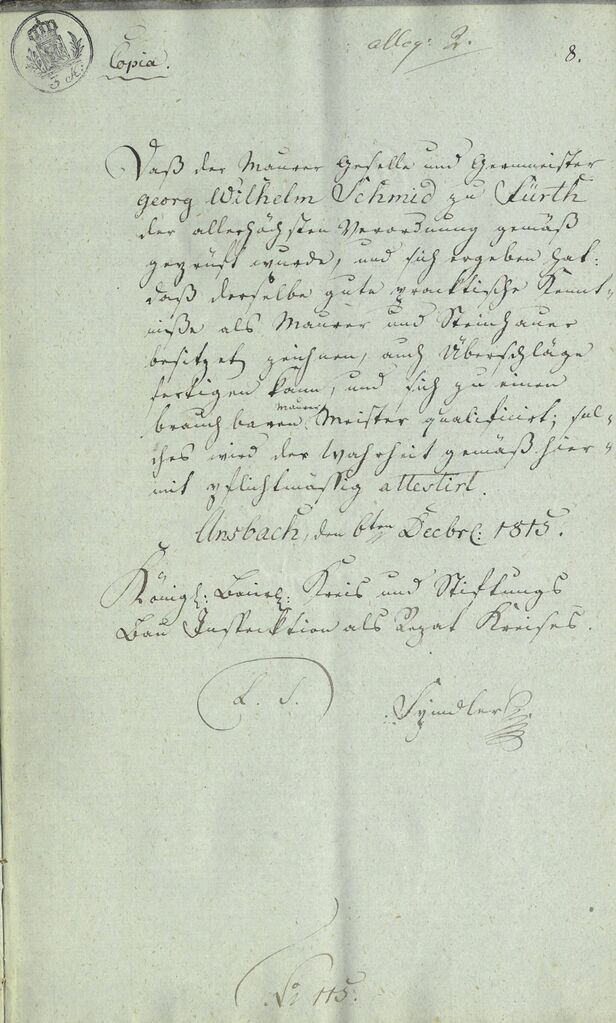 3 K:
Copia.
alleg: 2.
8.
Daß der Maurer Geselle und Germeister
Georg Wilhelm Schmid zu Fürth
der allerhöchsten Verordnung gemäß
geprüft wurde, und sich ergeben hat:
daß derselbe gute practische Kennt-
niße als Maurer und Steinhauer
besitzet zeichnen, auch Überschläge
fertigen kann, und sich zu einen
brauchbaren Maurer Meister qualificirt; sol-
ches wird der Wahrheit gemäß hier-
mit pflichtmässig attestirt.
Ansbach, den 6ten Decbr: 1815.
Königl: Baier: Kreis und Stiftungs
Bau Inspecktion als Rezat Kreises.
L. S.
Spindler
No 115.